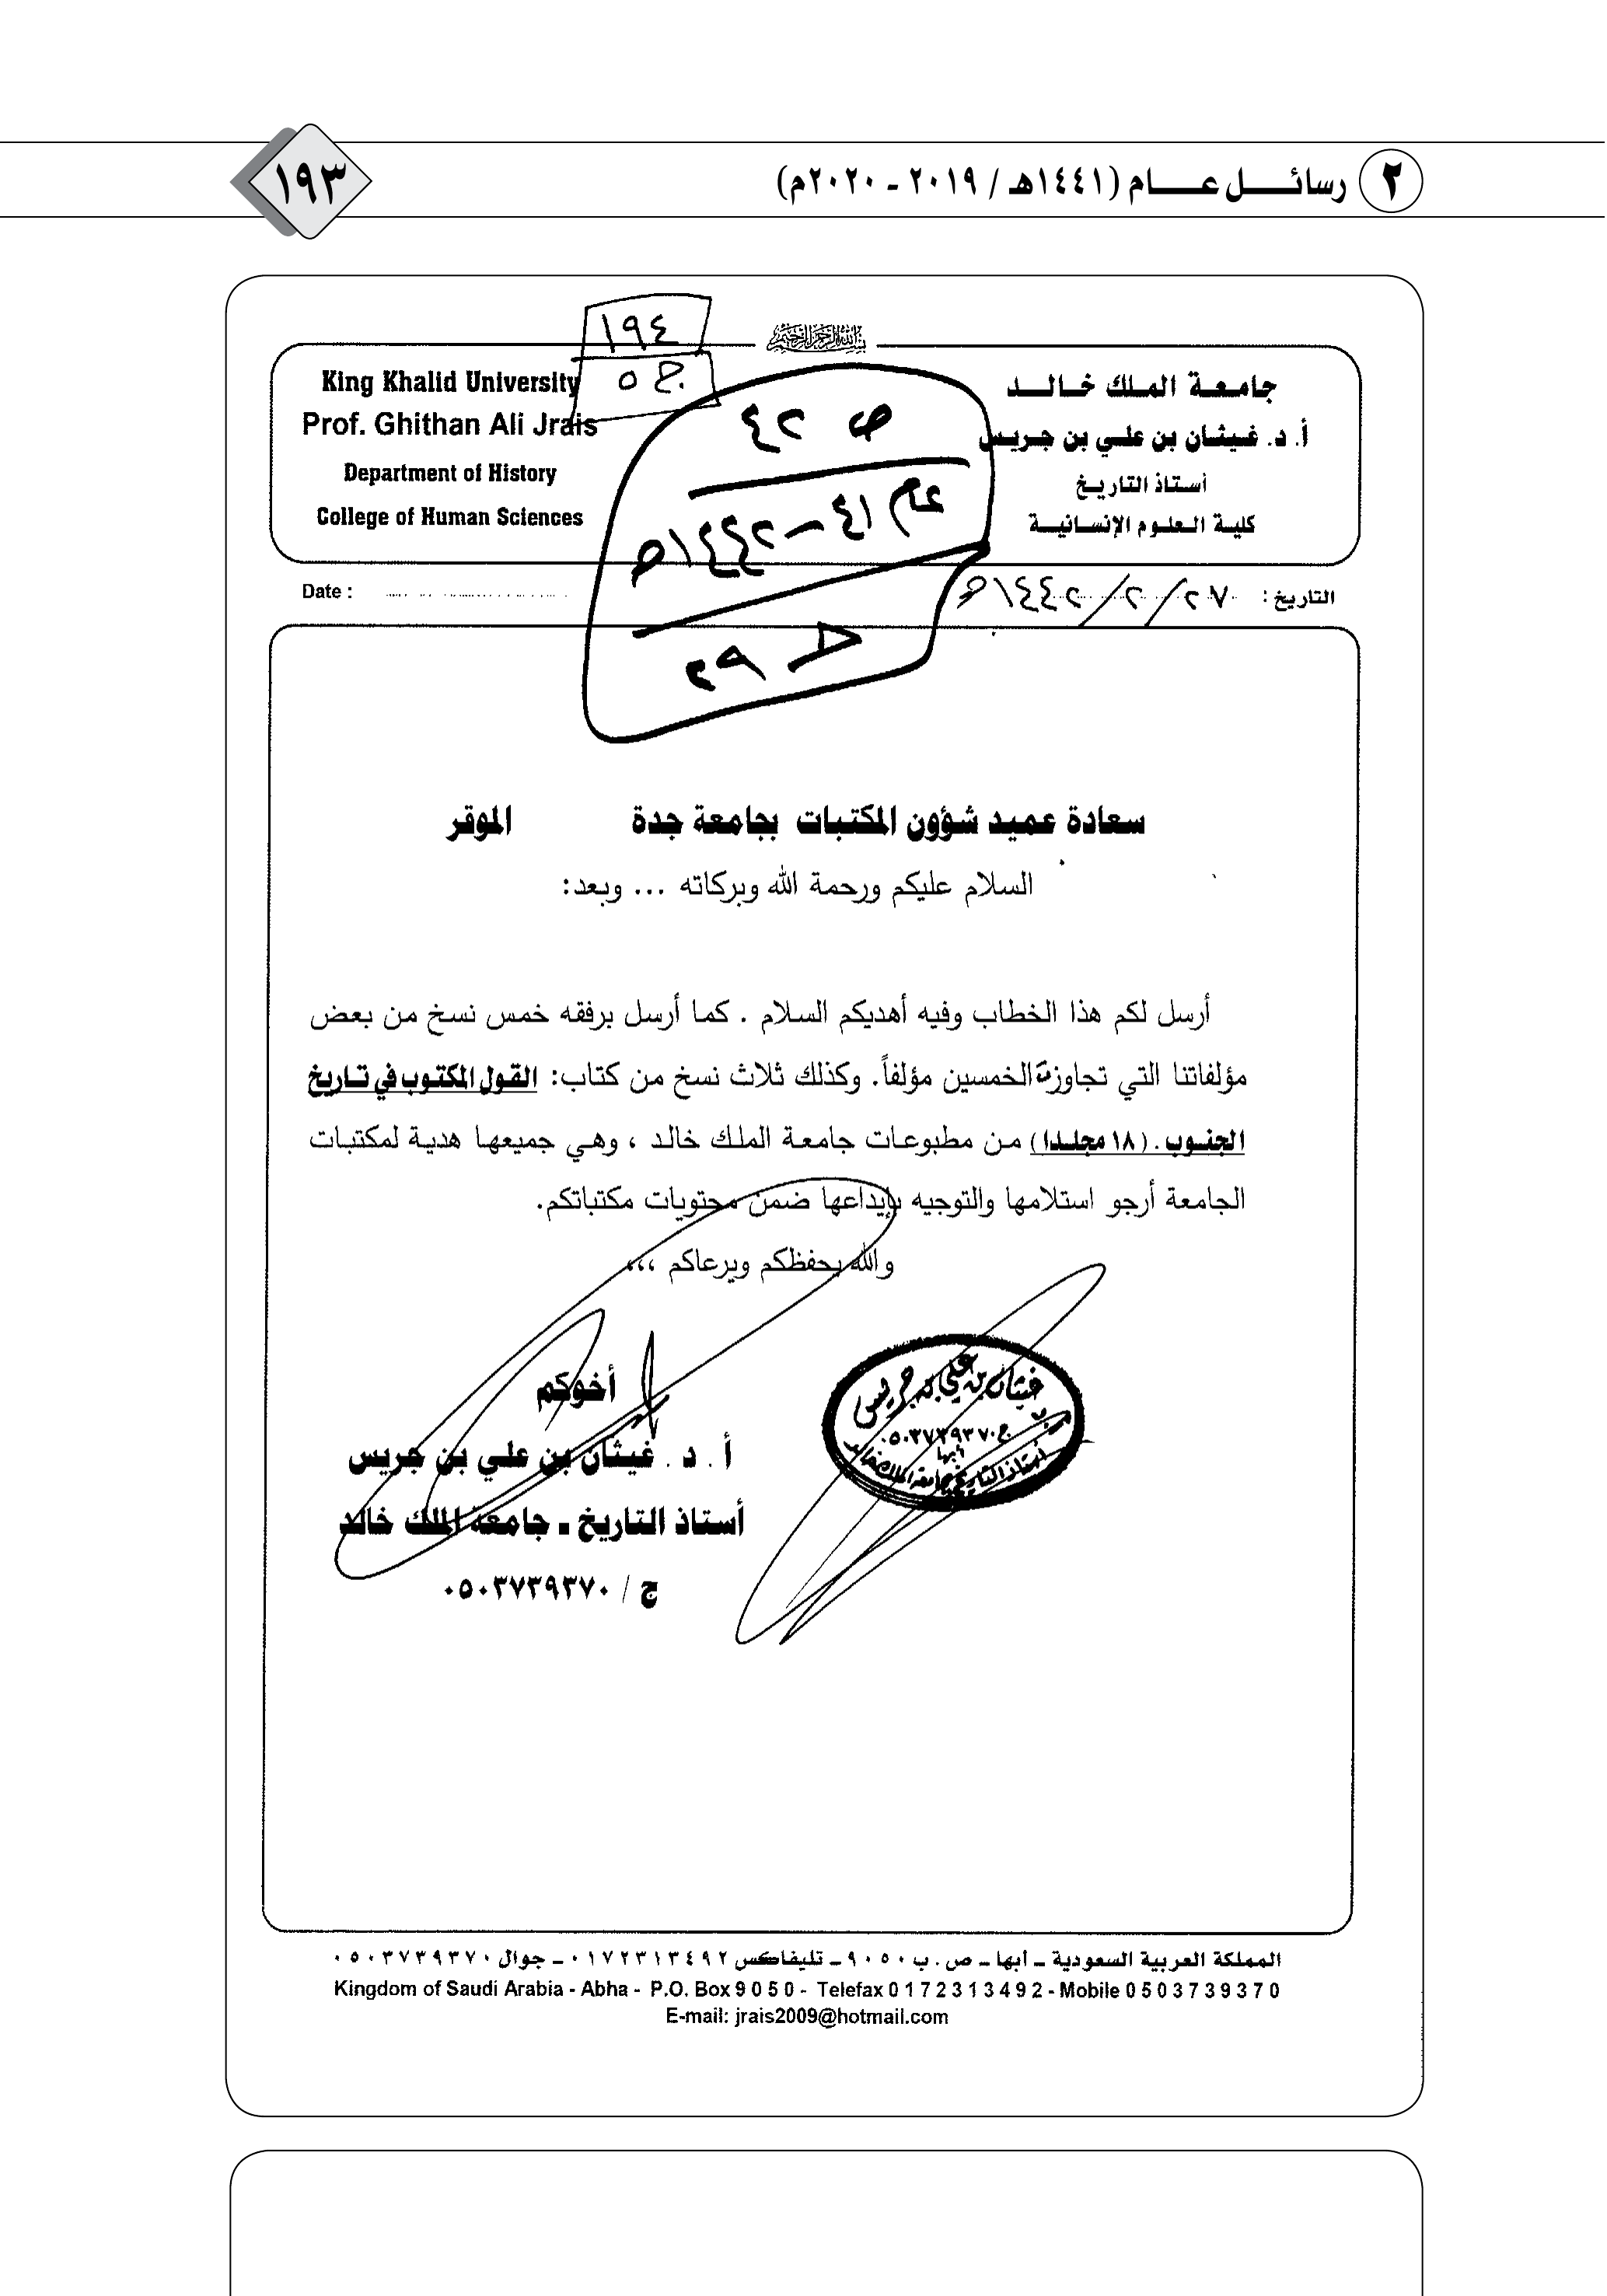 ٢ رسائل عام (١٤٤١هـ / ٢٠١٩ - ٢٠٢٠م)
١٩٣
بسم الله الرحمن الرحيم
١٩٤
ج ٥
جامعة الملك خالد
أ. د. غيثان بن علي بن جريس
أستاذ التاريخ
كلية العلوم الإنسانية
King Khalid University
Prof. Ghithan Ali Jrais
Department of History
College of Human Sciences
ص ٢٤
التاريخ : ٢٧/٢/١٤٤٢هـ
Date :
سعادة عميد شؤون المكتبات بجامعة جدة الموقر
السلام عليكم ورحمة الله وبركاته ... وبعد:
أرسل لكم هذا الخطاب وفيه أهديكم السلام . كما أرسل برفقه خمس نسخ من بعض
مؤلفاتنا التي تجاوزت الخمسين مؤلفاً. وكذلك ثلاث نسخ من كتاب: القول المكتوب في تاريخ
الجنوب. (١٨ مجلدا) من مطبوعات جامعة الملك خالد ، وهي جميعها هدية لمكتبات
الجامعة أرجو استلامها والتوجيه بإيداعها ضمن محتويات مكتباتكم.
والله يحفظكم ويرعاكم ،،،
أخوكم
أ . د . غيثان بن علي بن جريس
أستاذ التاريخ ـ جامعة الملك خالد
ج / ٠٥٠٣٧٣٩٣٧٠
غيثان بن علي بن جريس
ج ٠٥٠٣٧٣٩٣٧٠
أبها
أستاذ التاريخ بجامعة الملك خالد
المملكة العربية السعودية ـ أبها ـ ص . ب ٩٠٥٠ ـ تليفاكس ٠١٧٢٣١٣٤٩٢ ـ جوال ٠٥٠٣٧٣٩٣٧٠
Kingdom of Saudi Arabia - Abha - P.O. Box 9 0 5 0 - Telefax 0 1 7 2 3 1 3 4 9 2 - Mobile 0 5 0 3 7 3 9 3 7 0
E-mail: jrais2009@hotmail.com